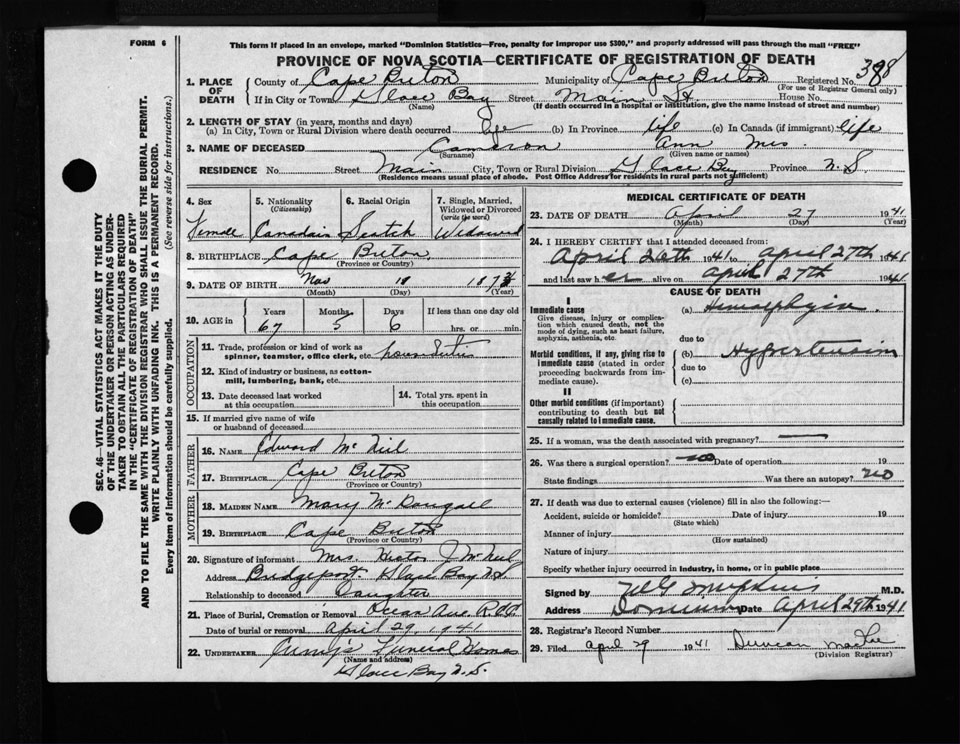 FORM 6
This form if placed in an envelope, marked "Dominion Statistics—Free, penalty for improper use $300," and properly addressed will pass through the mail "FREE"
PROVINCE OF NOVA SCOTIA—CERTIFICATE OF REGISTRATION OF DEATH
SEC. 46—VITAL STATISTICS ACT MAKES IT THE DUTY
OF THE UNDERTAKER OR PERSON ACTING AS UNDER-
TAKER TO OBTAIN ALL THE PARTICULARS REQUIRED
IN THE "CERTIFICATE OF REGISTRATION OF DEATH"
AND TO FILE THE SAME WITH THE DIVISION REGISTRAR WHO SHALL ISSUE THE BURIAL PERMIT.
WRITE PLAINLY WITH UNFADING INK. THIS IS A PERMANENT RECORD.
Every item of Information should be carefully supplied. (See reverse side for instructions.)
1. PLACE OF DEATH County of Cape Breton Municipality of Cape Breton Registered No. 388
(For use of Registrar General only)
If in City or Town Glace Bay Street Main St. House No.
(Name) (If death occurred in a hospital or institution, give the name instead of street and number)
2. LENGTH OF STAY (in years, months and days)
(a) In City, Town or Rural Division where death occurred life (b) In Province life (c) In Canada (if immigrant) life
3. NAME OF DECEASED Cameron Ann Mrs.
(Surname) (Given name or names)
RESIDENCE No. Street Main City, Town or Rural Division Glace Bay Province N.S
(Residence means usual place of abode. Post Office Address for residents in rural parts not sufficient)
4. Sex 5. Nationality (Citizenship) 6. Racial Origin 7. Single, Married, Widowed or Divorced (write the word)
Female Canadain Scotch Widowed
8. BIRTHPLACE Cape Breton
(Province or Country)
9. DATE OF BIRTH Nov 18
(Month) (Day) (Year)
10. AGE in Years Months Days If less than one day old
67 5 6 hrs. or min.
OCCUPATION
11. Trade, profession or kind of work as
spinner, teamster, office clerk, etc.
12. Kind of industry or business, as cotton-
mill, lumbering, bank, etc.
13. Date deceased last worked
at this occupation
14. Total yrs. spent in
this occupation
15. If married give name of wife
or husband of deceased
FATHER
16. NAME Edward McNeil
17. BIRTHPLACE Cape Breton
(Province or Country)
MOTHER
18. MAIDEN NAME Mary McDougall
19. BIRTHPLACE Cape Breton
(Province or Country)
20. Signature of informant Mrs. Hector J. McNeil
Address Bridgeport Glace Bay N.S.
Relationship to deceased Daughter
21. Place of Burial, Cremation or Removal Ocean Ave
Date of burial or removal April 29, 1941
22. UNDERTAKER Funeral Homes
(Name and address)
Glace Bay N.S.
MEDICAL CERTIFICATE OF DEATH
23. DATE OF DEATH April 27 1941
(Month) (Day)
24. I HEREBY CERTIFY that I attended deceased from:
April 26th 1941 to April 27th 1941
and last saw her alive on April 27th 1941
CAUSE OF DEATH
I
Immediate cause
Give disease, injury or complica-
tion which caused death, not the
mode of dying, such as heart failure,
asphyxia, asthenia, etc.
(a)
due to
Morbid conditions, if any, giving rise to
immediate cause (stated in order
proceeding backwards from im-
mediate cause).
(b) Hypertension
due to
(c)
II
Other morbid conditions (if important)
contributing to death but not
causally related to immediate cause.
25. If a woman, was the death associated with pregnancy?
26. Was there a surgical operation? no Date of operation 19
State findings Was there an autopsy? no
27. If death was due to external causes (violence) fill in also the following:—
Accident, suicide or homicide? Date of injury 19
(State which)
Manner of injury
(How sustained)
Nature of injury
Specify whether injury occurred in industry, in home, or in public place
Signed by M.D.
Address Dominion Date April 29th 1941
28. Registrar's Record Number
29. Filed April 29 1941 Duncan
(Division Registrar)